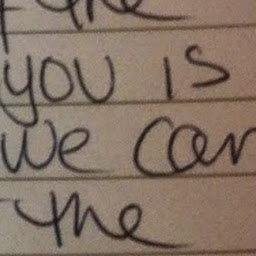 the
you is
we can
the